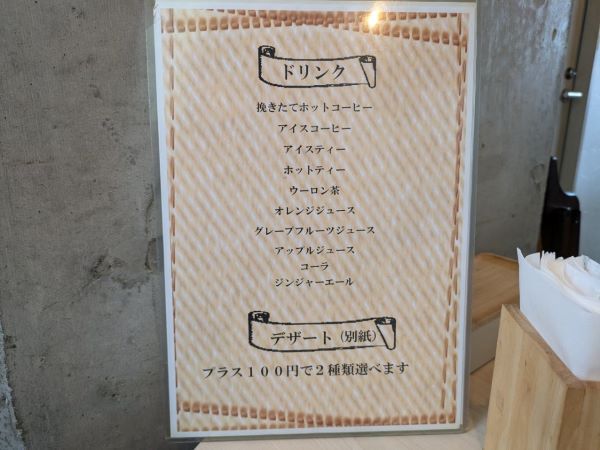 ドリンク
挽きたてホットコーヒー
アイスコーヒー
アイスティー
ホットティー
ウーロン茶
オレンジジュース
グレープフルーツジュース
アップルジュース
コーラ
ジンジャーエール
デザート(別紙)
プラス１００円で２種類選べます